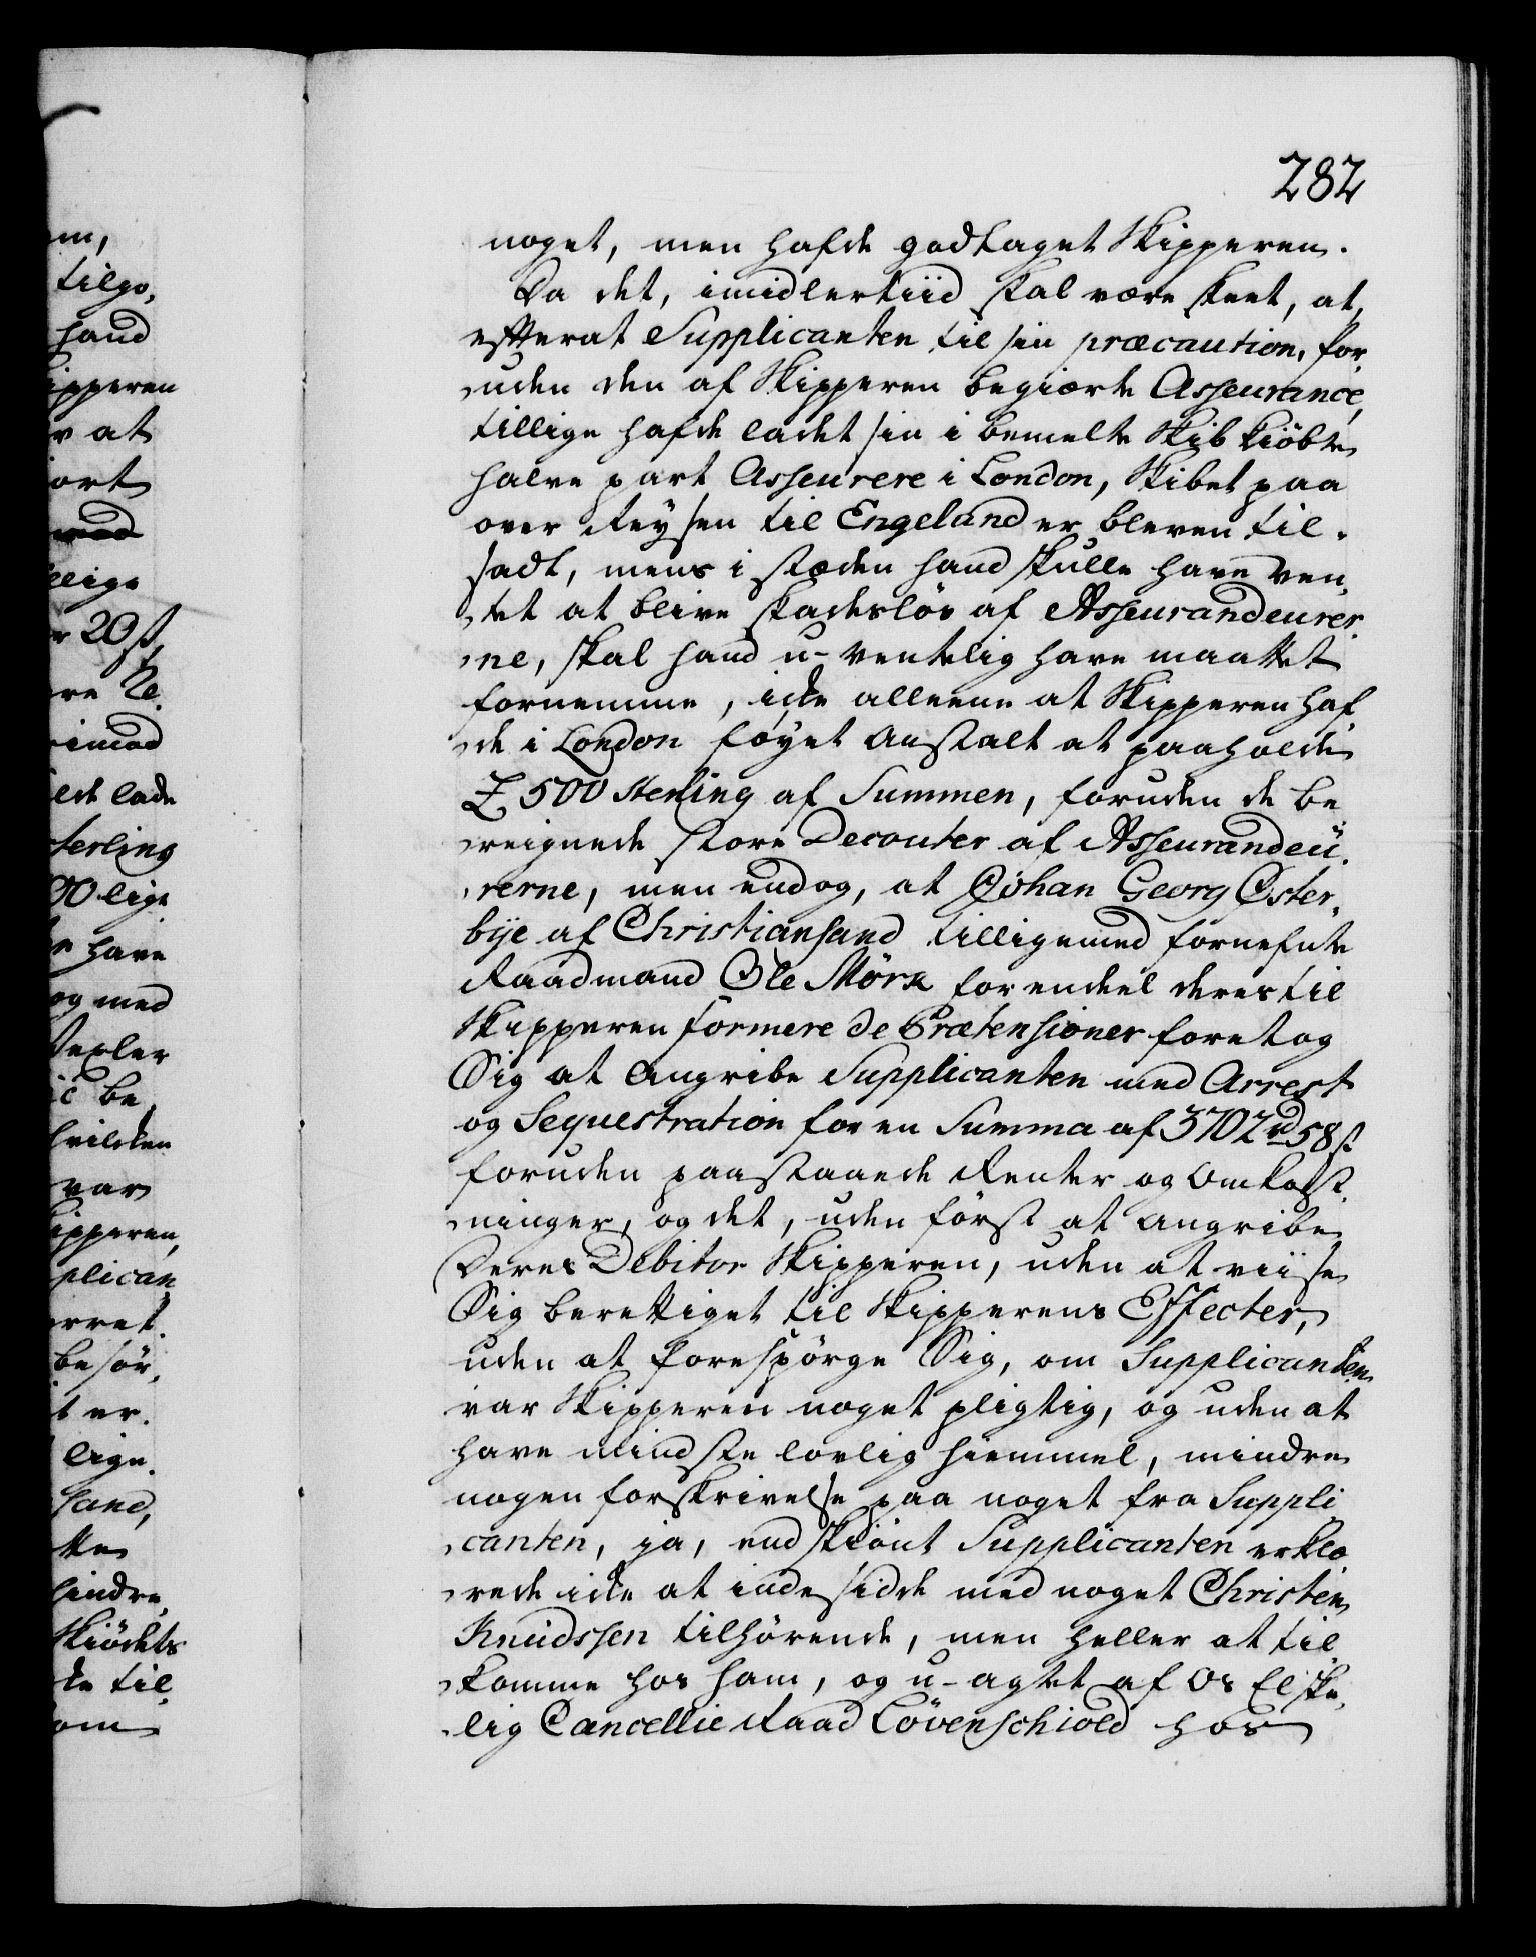 282
noget, men hafde godtaget Skipperen.
Da det, imidlertiid skal være skeet, at,
efterat Supplicanten til sin præcaution, for,
uden den af Skipperen begiærte Asseurance,
tillige hafde ladet sin i bemelte Skib kiöbte
halve part Asseurere i London, Skibet paa
over Reysen til Engeland er bleven til.
sadt, mens i stæden hand skulle have ven,
tet at blive skadeslös af Asseurandeurer,
ne, skal hand u-ventelig have maattet
fornemme, icke alleene at Skipperen haf,
de i London föyet Anstalt at paaholde
£ 500 Sterling af Summen, foruden de be,
reignede store Decouter af Asseurandeü,
rerne, men endog, at Johan Georg Öster,
bye af Christiansand tilligemed fornefnte
Raadmand Ole Mörk for endeel deres til
Skipperen formerede Prætensioner foretog
Sig at Angribe Supplicanten med Arrest
og Sequestration for en Summa af 3702 rd 58 s
foruden paastaaede Renter og Omkost,
ninger, og det, uden först at angribe
Deres Debitor Skipperen, uden at viise
Sig berettiget til Skipperens Effecter,
uden at forespörge Sig, om Supplicanten
var Skipperen noget pligtig, og uden at
have mindste lovlig hiemmel, mindre
nogen forskrivelse paa noget fra Suppli,
canten, ja, endskiönt Supplicanten erklæ,
rede icke at indesidde med noget Christen
Knudssen tilhörende, men heller at til,
komme hos ham, og u-agtet af Os Elske,
lig Cancellie Raad Lövenschiold hos